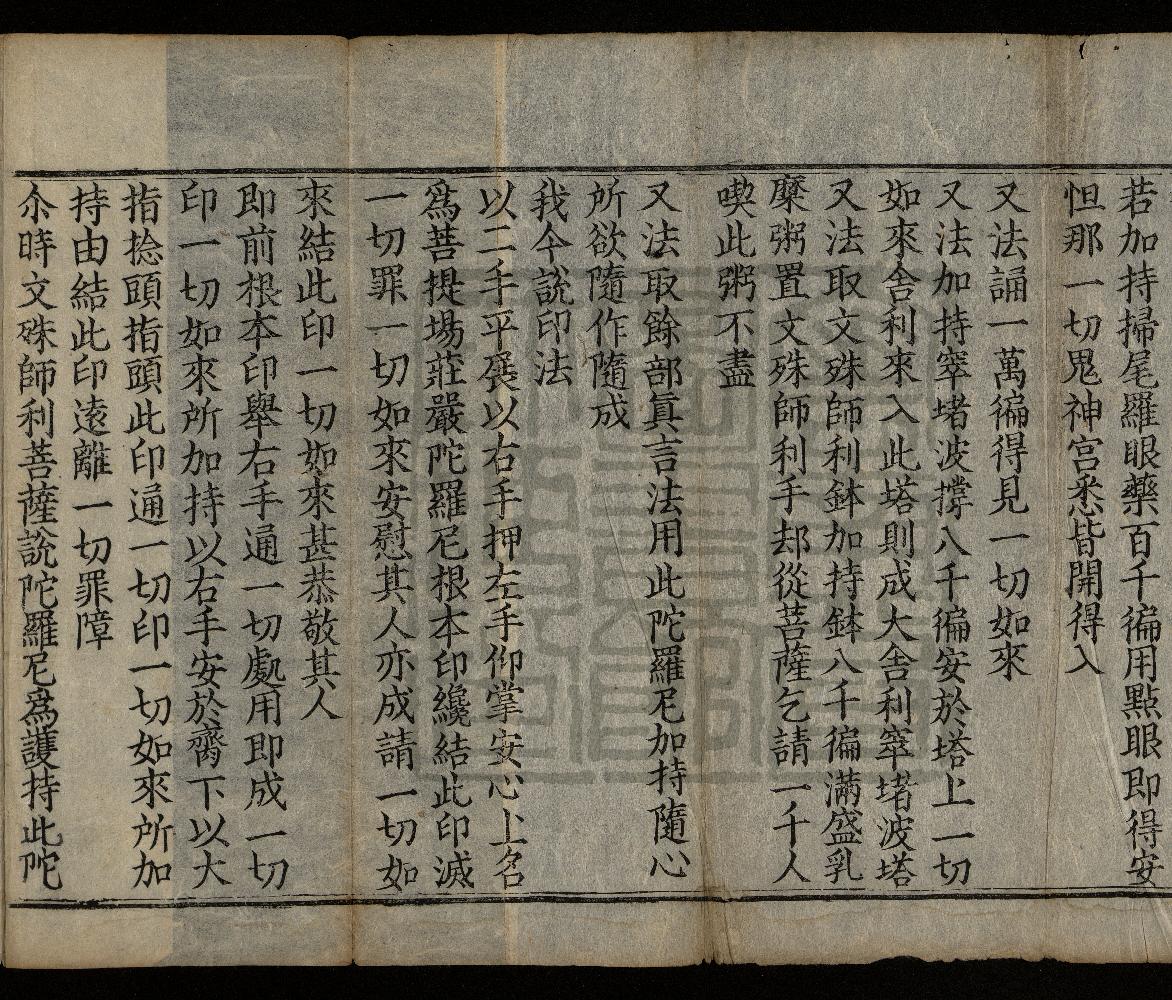 若加持掃尾羅眼藥百千徧用點眼即得安
怛那一切鬼神宫悉皆開得入
又法誦一萬徧得見一切如來
又法加持窣堵波撑八千徧安於塔上一切
如來舍利來入此塔則成大舍利窣堵波塔
又法取文殊師利鉢加持鉢八千徧滿盛乳
糜粥置文殊師利手却從菩薩乞請一千人
喫此粥不盡
又法取餘部眞言法用此陀羅尼加持隨心
所欲隨作隨成
我今說印法
以二手平展以右手押左手仰掌安心上名
爲菩提場莊嚴陀羅尼根本印纔結此印滅
一切罪一切如來安慰其人亦成請一切如
來結此印一切如來甚恭敬其人
即前根本印舉右手通一切處用即成一切
印一切如來所加持以右手安於臍下以大
指捻頭指頭此印通一切印一切如來所加
持由結此印遠離一切罪障
尒時文殊師利菩薩說陀羅尼爲護持此陀